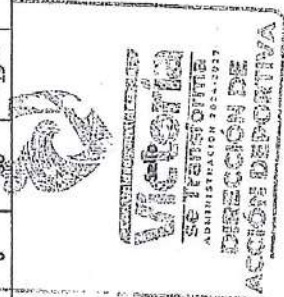 Victoria
se transforma
ADMINISTRACIÓN 2024-2027
DIRECCIÓN DE
ACCIÓN DEPORTIVA